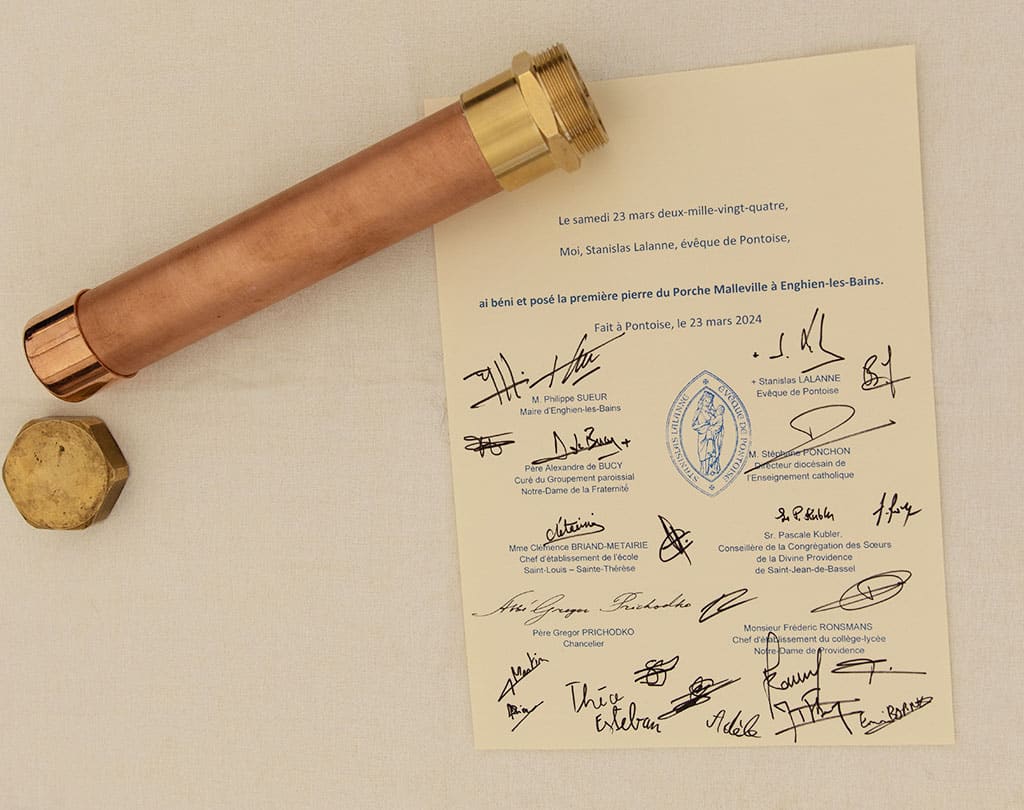 Le samedi 23 mars deux-mille-vingt-quatre,
Moi, Stanislas Lalanne, évêque de Pontoise,
ai béni et posé la première pierre du Porche Malleville à Enghien-les-Bains.
Fait à Pontoise, le 23 mars 2024
M. Philippe SUEUR
Maire d'Enghien-les-Bains
+ Stanislas LALANNE
Evêque de Pontoise
STANISLAS LALANNE
ÉVÊQUE DE PONTOISE
A. de Bucy +
Père Alexandre de BUCY
Curé du Groupement paroissial
Notre-Dame de la Fraternité
M. Stéphane PONCHON
Directeur diocésain de
l'Enseignement catholique
Mme Clémence BRIAND-METAIRIE
Chef d'établissement de l'école
Saint-Louis – Sainte-Thérèse
Sr P. Kubler
Sr. Pascale Kubler,
Conseillère de la Congrégation des Sœurs
de la Divine Providence
de Saint-Jean-de-Bassel
Abbé Gregor Prichodko
Père Gregor PRICHODKO
Chancelier
Monsieur Fréderic RONSMANS
Chef d'établissement du collège-lycée
Notre-Dame de Providence
Martin
Théa
Esteban
Adèle